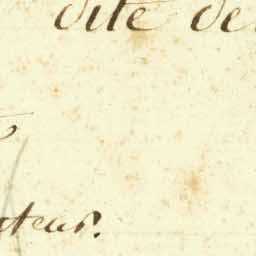 dite de
ateur.